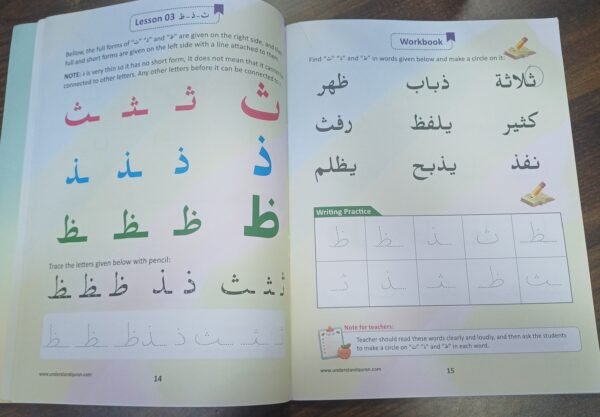 Lesson 03 ث - ذ - ظ
Bellow, the full forms of "ث" "ذ" and "ظ" are given on the right side, and
full and short forms are given on the left side with a line attached to them.
NOTE: ذ is very thin so it has no short form, It does not mean that it cannot
connected to other letters. Any other letters before it can be connected to
ث ث ـثـ ـث
ذ ذ ـذ ـذ
ظ ظ ـظـ ـظ
Trace the letters given below with pencil:
ـث ـثـ ث ذ ـذ ظ ـظـ ـظ
www.understandquran.com
14
Workbook
Find "ث" "ذ" and "ظ" in words given below and make a circle on it:
ثلاثة ذباب ظهر
كثير يلفظ رفث
نفذ يذبح يظلم
Writing Practice
ـظ ث ـذ ـظـ ظ
ـث ظ ـذ ـثـ ذ
Note for teachers:
Teacher should read these words clearly and loudly, and then ask the students
to make a circle on "ث" "ذ" and "ظ" in each word.
www.understandquran.com
15